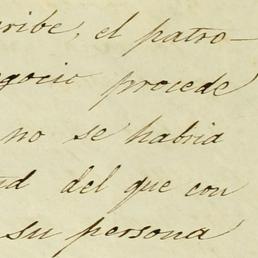 ribe, el patro-
egocio procede
no se habria
ud del que con
su persona